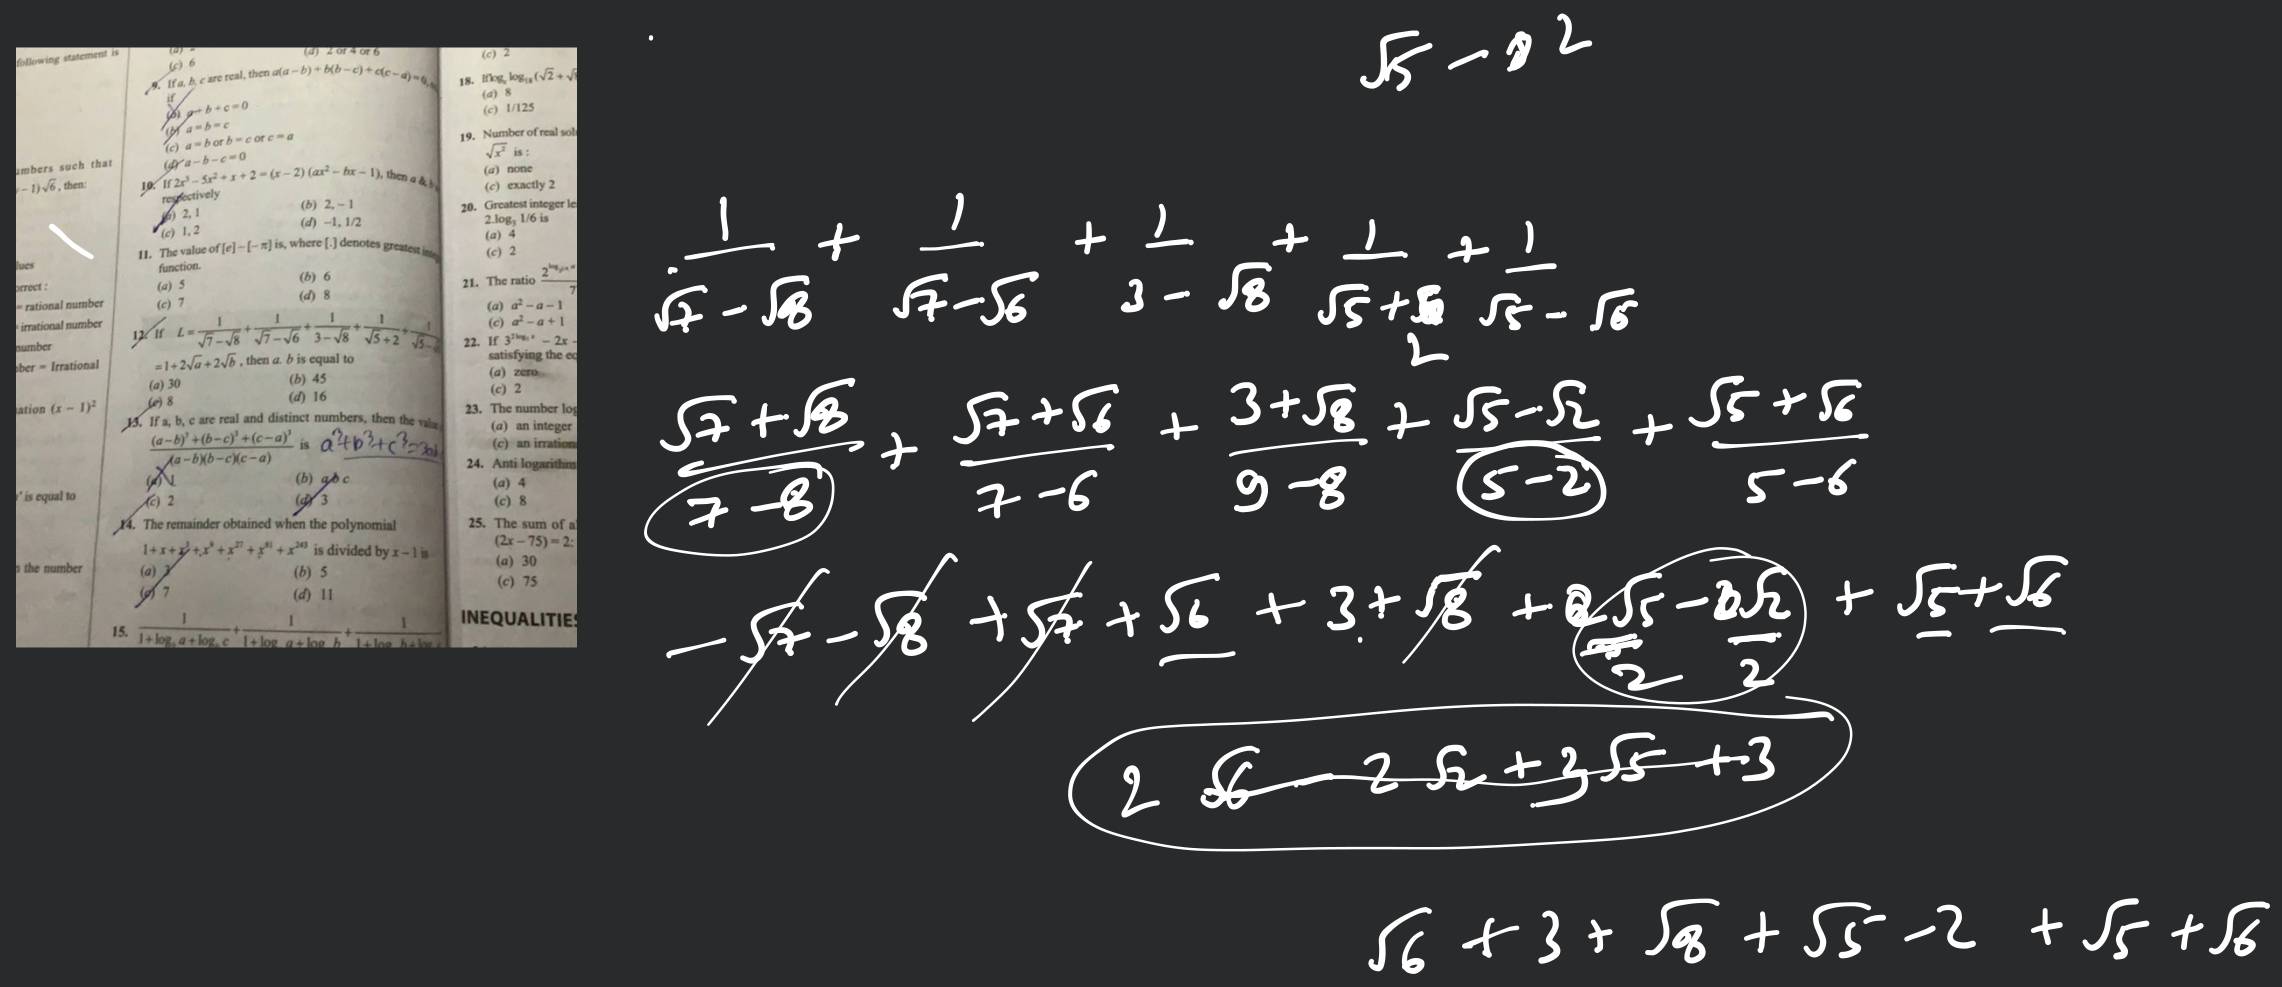 following statement is
umbers such that
– 1)√6, then:
lues
orrect :
= rational number
irrational number
number
ber = Irrational
ation (x – 1)²
r' is equal to
s the number
(d) 2 or 4 or 6
(c) 6
9. If a, b, c are real, then a(a – b) + b(b – c) + c(c – a) = 0,
if
(a) a + b + c = 0
(b) a = b = c
(c) a = b or b = c or c = a
(d) a – b – c = 0
10. If 2x³ – 5x² + x + 2 = (x – 2) (ax² – bx – 1), then a & b
respectively
(a) 2, 1 (b) 2, – 1
(c) 1, 2 (d) –1, 1/2
11. The value of [e] – [– π] is, where [.] denotes greatest
function.
(a) 5 (b) 6
(c) 7 (d) 8
12. If L = 1/(√7 – √8) + 1/(√7 – √6) + 1/(3 – √8) + 1/(√5 + 2) + 1/(√5 –
= 1 + 2√a + 2√b, then a. b is equal to
(a) 30 (b) 45
(c) 8 (d) 16
13. If a, b, c are real and distinct numbers, then the value
((a – b)³ + (b – c)³ + (c – a)³)/((a – b)(b – c)(c – a)) is a³+b³+c³=3ab
(a) 1 (b) abc
(c) 2 (d) 3
14. The remainder obtained when the polynomial
1 + x + x³ + x⁹ + x²⁷ + x⁸¹ + x²⁴³ is divided by x – 1 is
(a) 3 (b) 5
(c) 7 (d) 11
15.
(c) 2
18. If log log₁₈ (√2 + √
(a) 8
(c) 1/125
19. Number of real sol
√x² is :
(a) none
(c) exactly 2
20. Greatest integer le
2.log₃ 1/6 is
(a) 4
(c) 2
21. The ratio
(a) a² – a – 1
(c) a² – a + 1
22. If – 2x –
satisfying the eq
(a) zero
(c) 2
23. The number log
(a) an integer
(c) an irration
24. Anti logarithm
(a) 4
(c) 8
25. The sum of a
(2x – 75) = 2:
(a) 30
(c) 75
INEQUALITIES
√5 – 2
1/(√7 – √8) + 1/(√7 – √6) + 1/(3 – √8) + 1/(√5 + 2) + 1/(√5 – √6)
(√7 + √8)/(7 – 8) + (√7 + √6)/(7 – 6) + (3 + √8)/(9 – 8) + (√5 – √2)/(5 – 2) + (√5 + √6)/(5 – 6)
– √7 – √8 + √7 + √6 + 3 + √8 + √5/2 – √2/2 + √5 + √6
2 √6 – 2 √2 + 3√5 + 3
√6 + 3 + √8 + √5 – 2 + √5 + √6